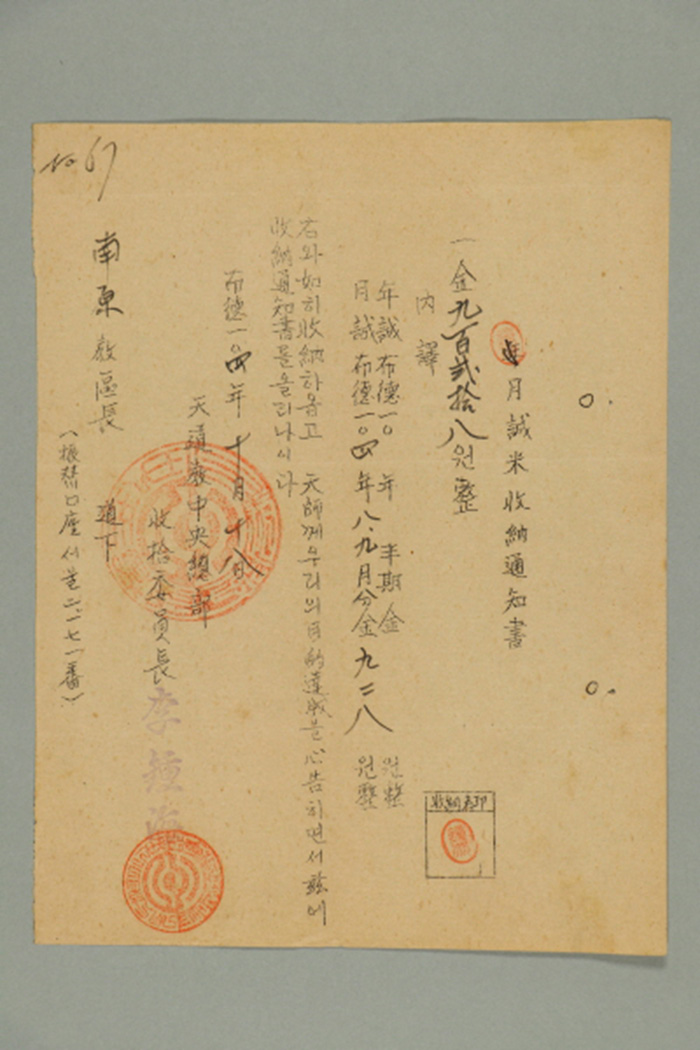 No 67
月誠米收納通知書
一金九百貳拾八원整
內譯
年誠布德一〇 年 半期金 원整
月誠布德一〇四年八.九月分金九二八원整
右와如히收納하옵고 天師께우리의目的達成을心告히면서玆에
收納通知書를올리나이다
布德一〇四年十月十八
天道敎中央總部
收拾委員長 李鍾海
南原敎區長 道下
(振替口座서울二一七一番)
收納者印